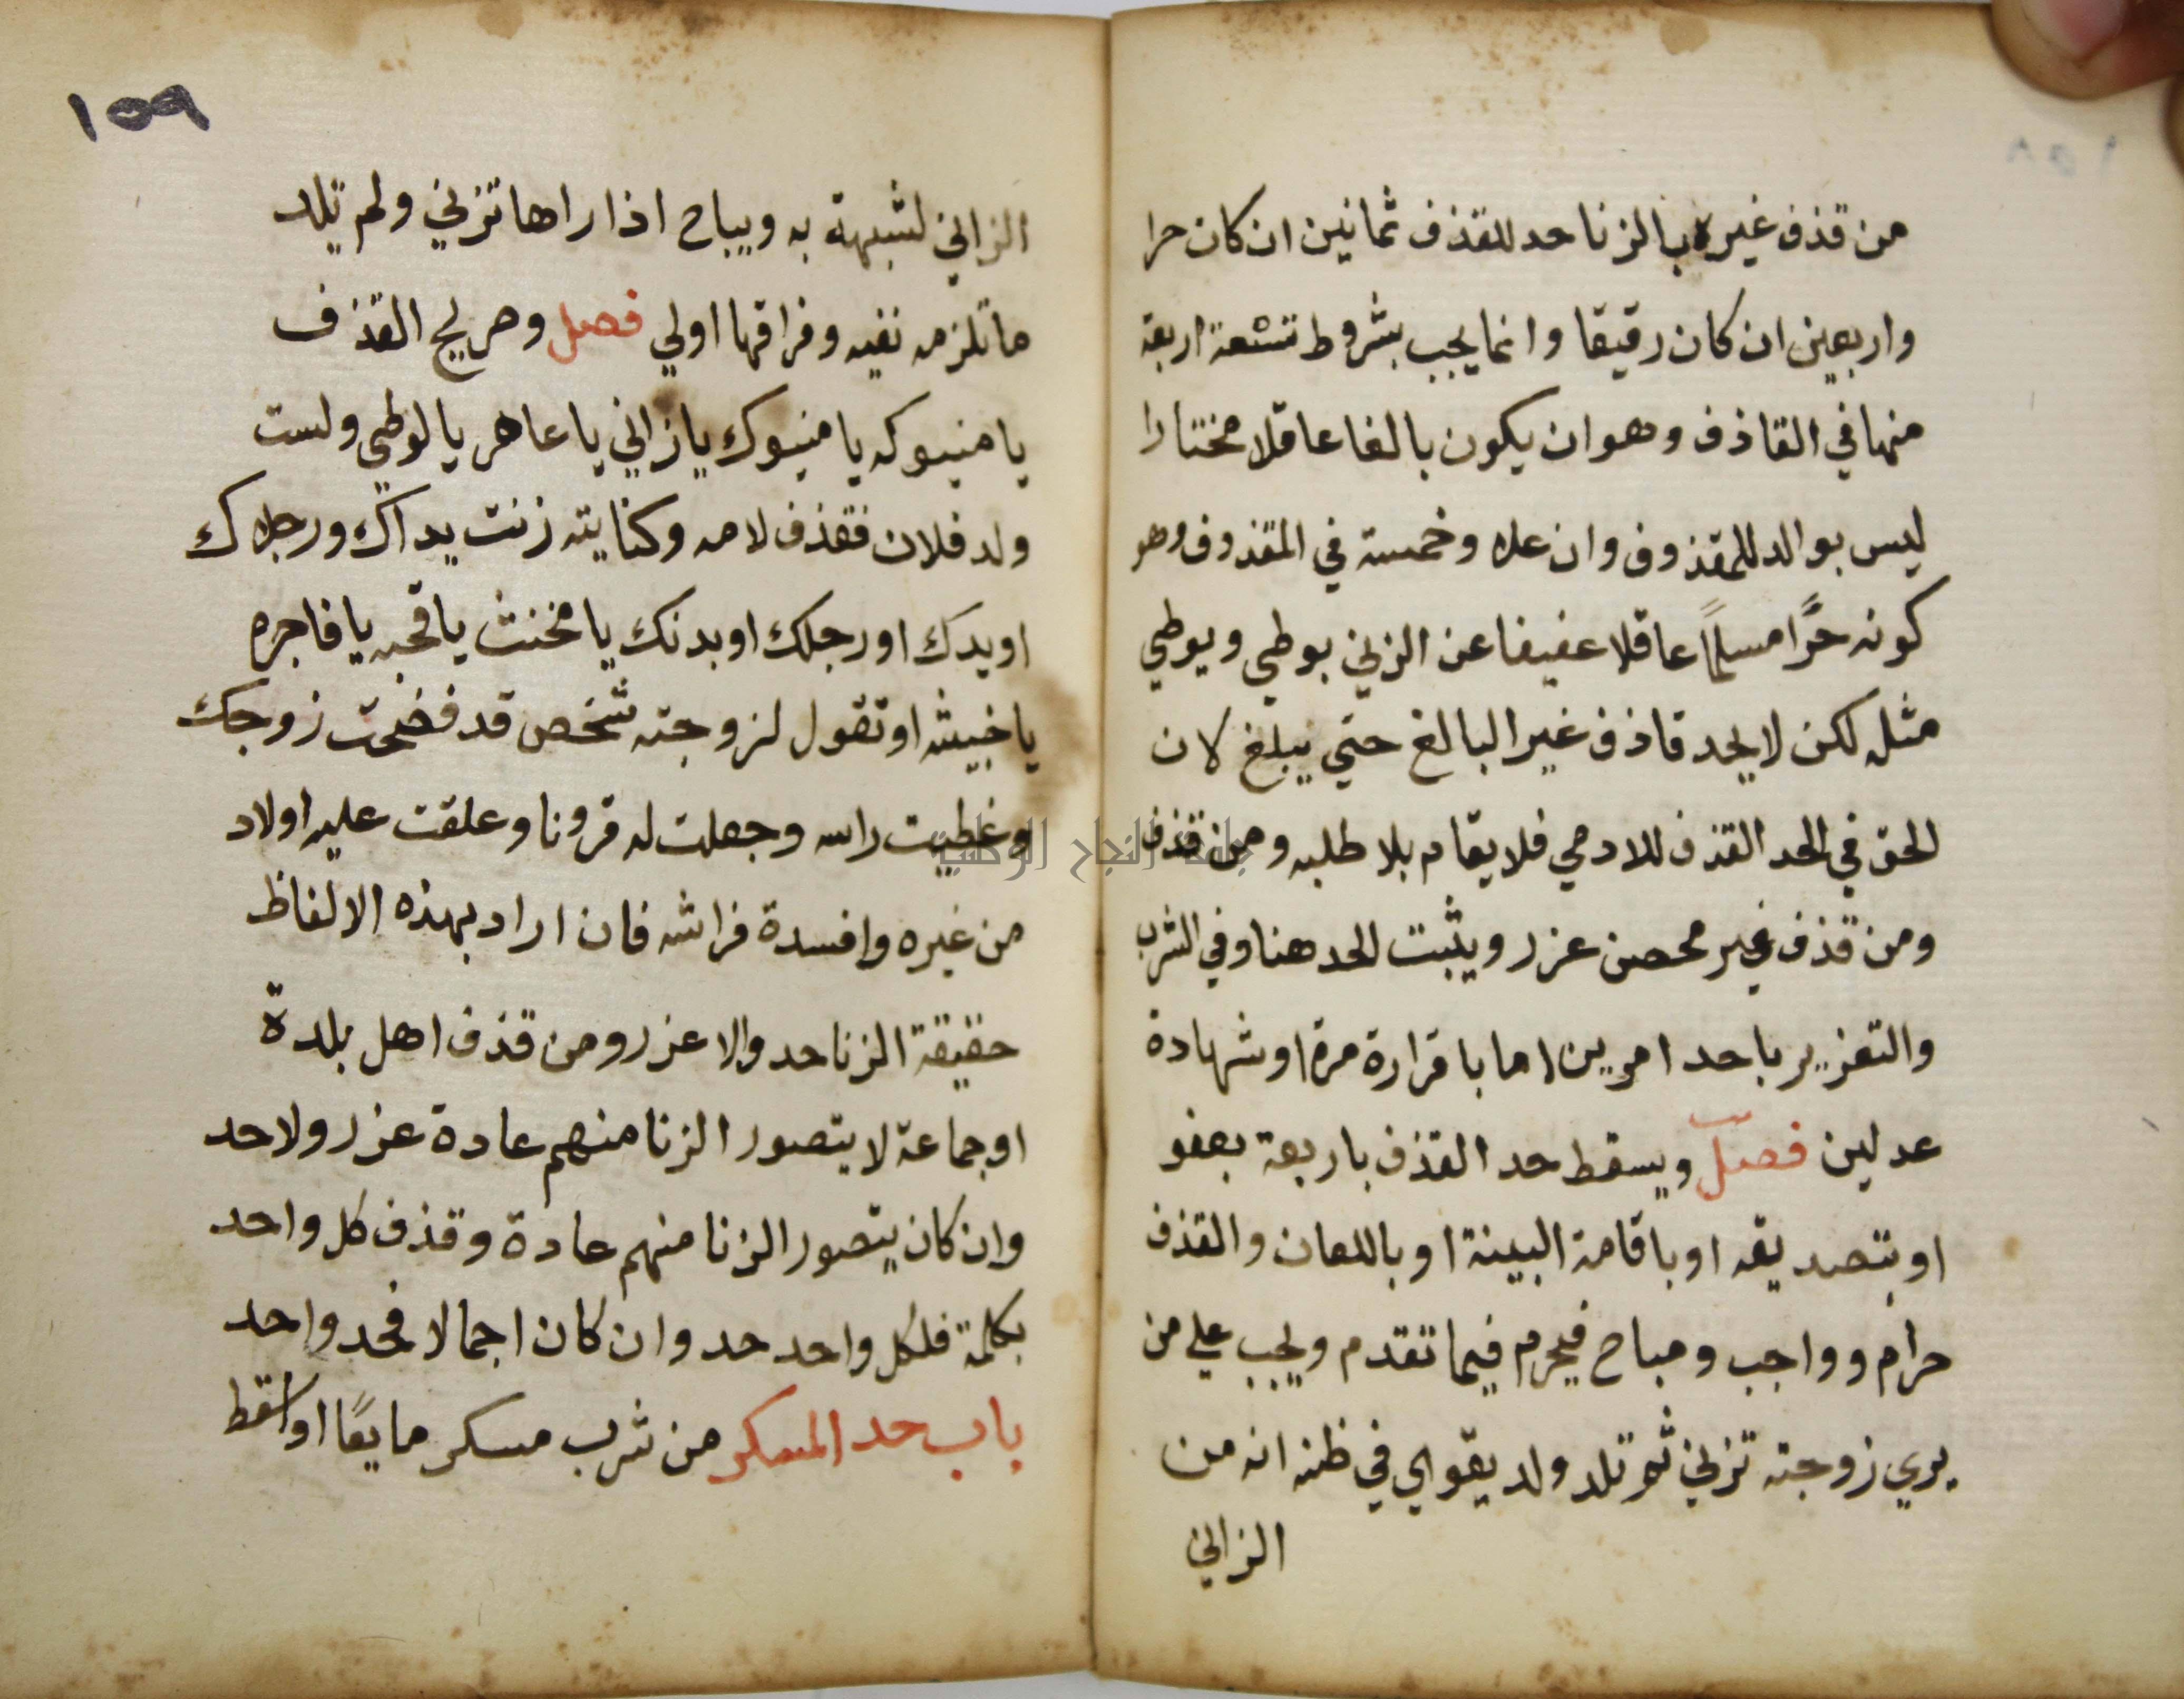 من قذف غيره بالزنا حد للقذف ثمانين ان كان حرا
واربعين ان كان رقيقا وانما يجب بشروط تسعة اربعة
منها في القاذف وهو ان يكون بالغا عاقلا مختارا
ليس بوالد للمقذوف وان علا وخمسة في المقذوف وهو
كونه حرًا مسلمًا عاقلا عفيفا عن الزني بوطي ويوطي
مثله لكن لا يحد قاذف غير البالغ حتي يبلغ لان
الحق في الحد القذف للادمي فلا يقام بلا طلبه ومن قذف
ومن قذف غير محصن عزر ويثبت الحد هنا وفي الشرب
والتعزير باحد امرين اما باقرارة مرة او شهادة
عدلين فصل ويسقط حد القذف باربعة بعفو
او بتصديقه او باقامة البينة او باللعان والقذف
حرام وواجب ومباح فيحرم فيما تقدم ويجب علي من
يري زوجته تزني ثم تلد ولد يقوي في ظنه انه من
الزاني
١٥٩
الزاني لشبهة به ويباح اذا راها تزني ولم تلد
ما تلزمه نفيه وفراقها اولي فصل وصريح القذف
يا منيوكه يا منيوك يا زاني يا عاهر يا لوطي ولست
ولد فلان فقذف لامه وكنايته زنت يداك ورجلاك
او يدك او رجلك او بدنك يا مخنث يا قحبه يا فاجره
يا خبيثه او تقول لزوجته شخص قد فضحت زوجك
وغطيت راسه وجعلت له قرونا وعلقت عليه اولاد
من غيره وافسدة فراشه فان اراد بهذه الالفاظ
حقيقة الزنا حد والا عزر ومن قذف اهل بلدة
او جماعة لا يتصور الزنا منهم عادة عزر ولا حد
وان كان يتصور الزنا منهم عادة وقذف كل واحد
بكلمة فلكل واحد حد وان كان اجمالا فحد واحد
باب حد المسكر من شرب مسكر مايعًا او اسقط
جامعة النجاح الوطنية